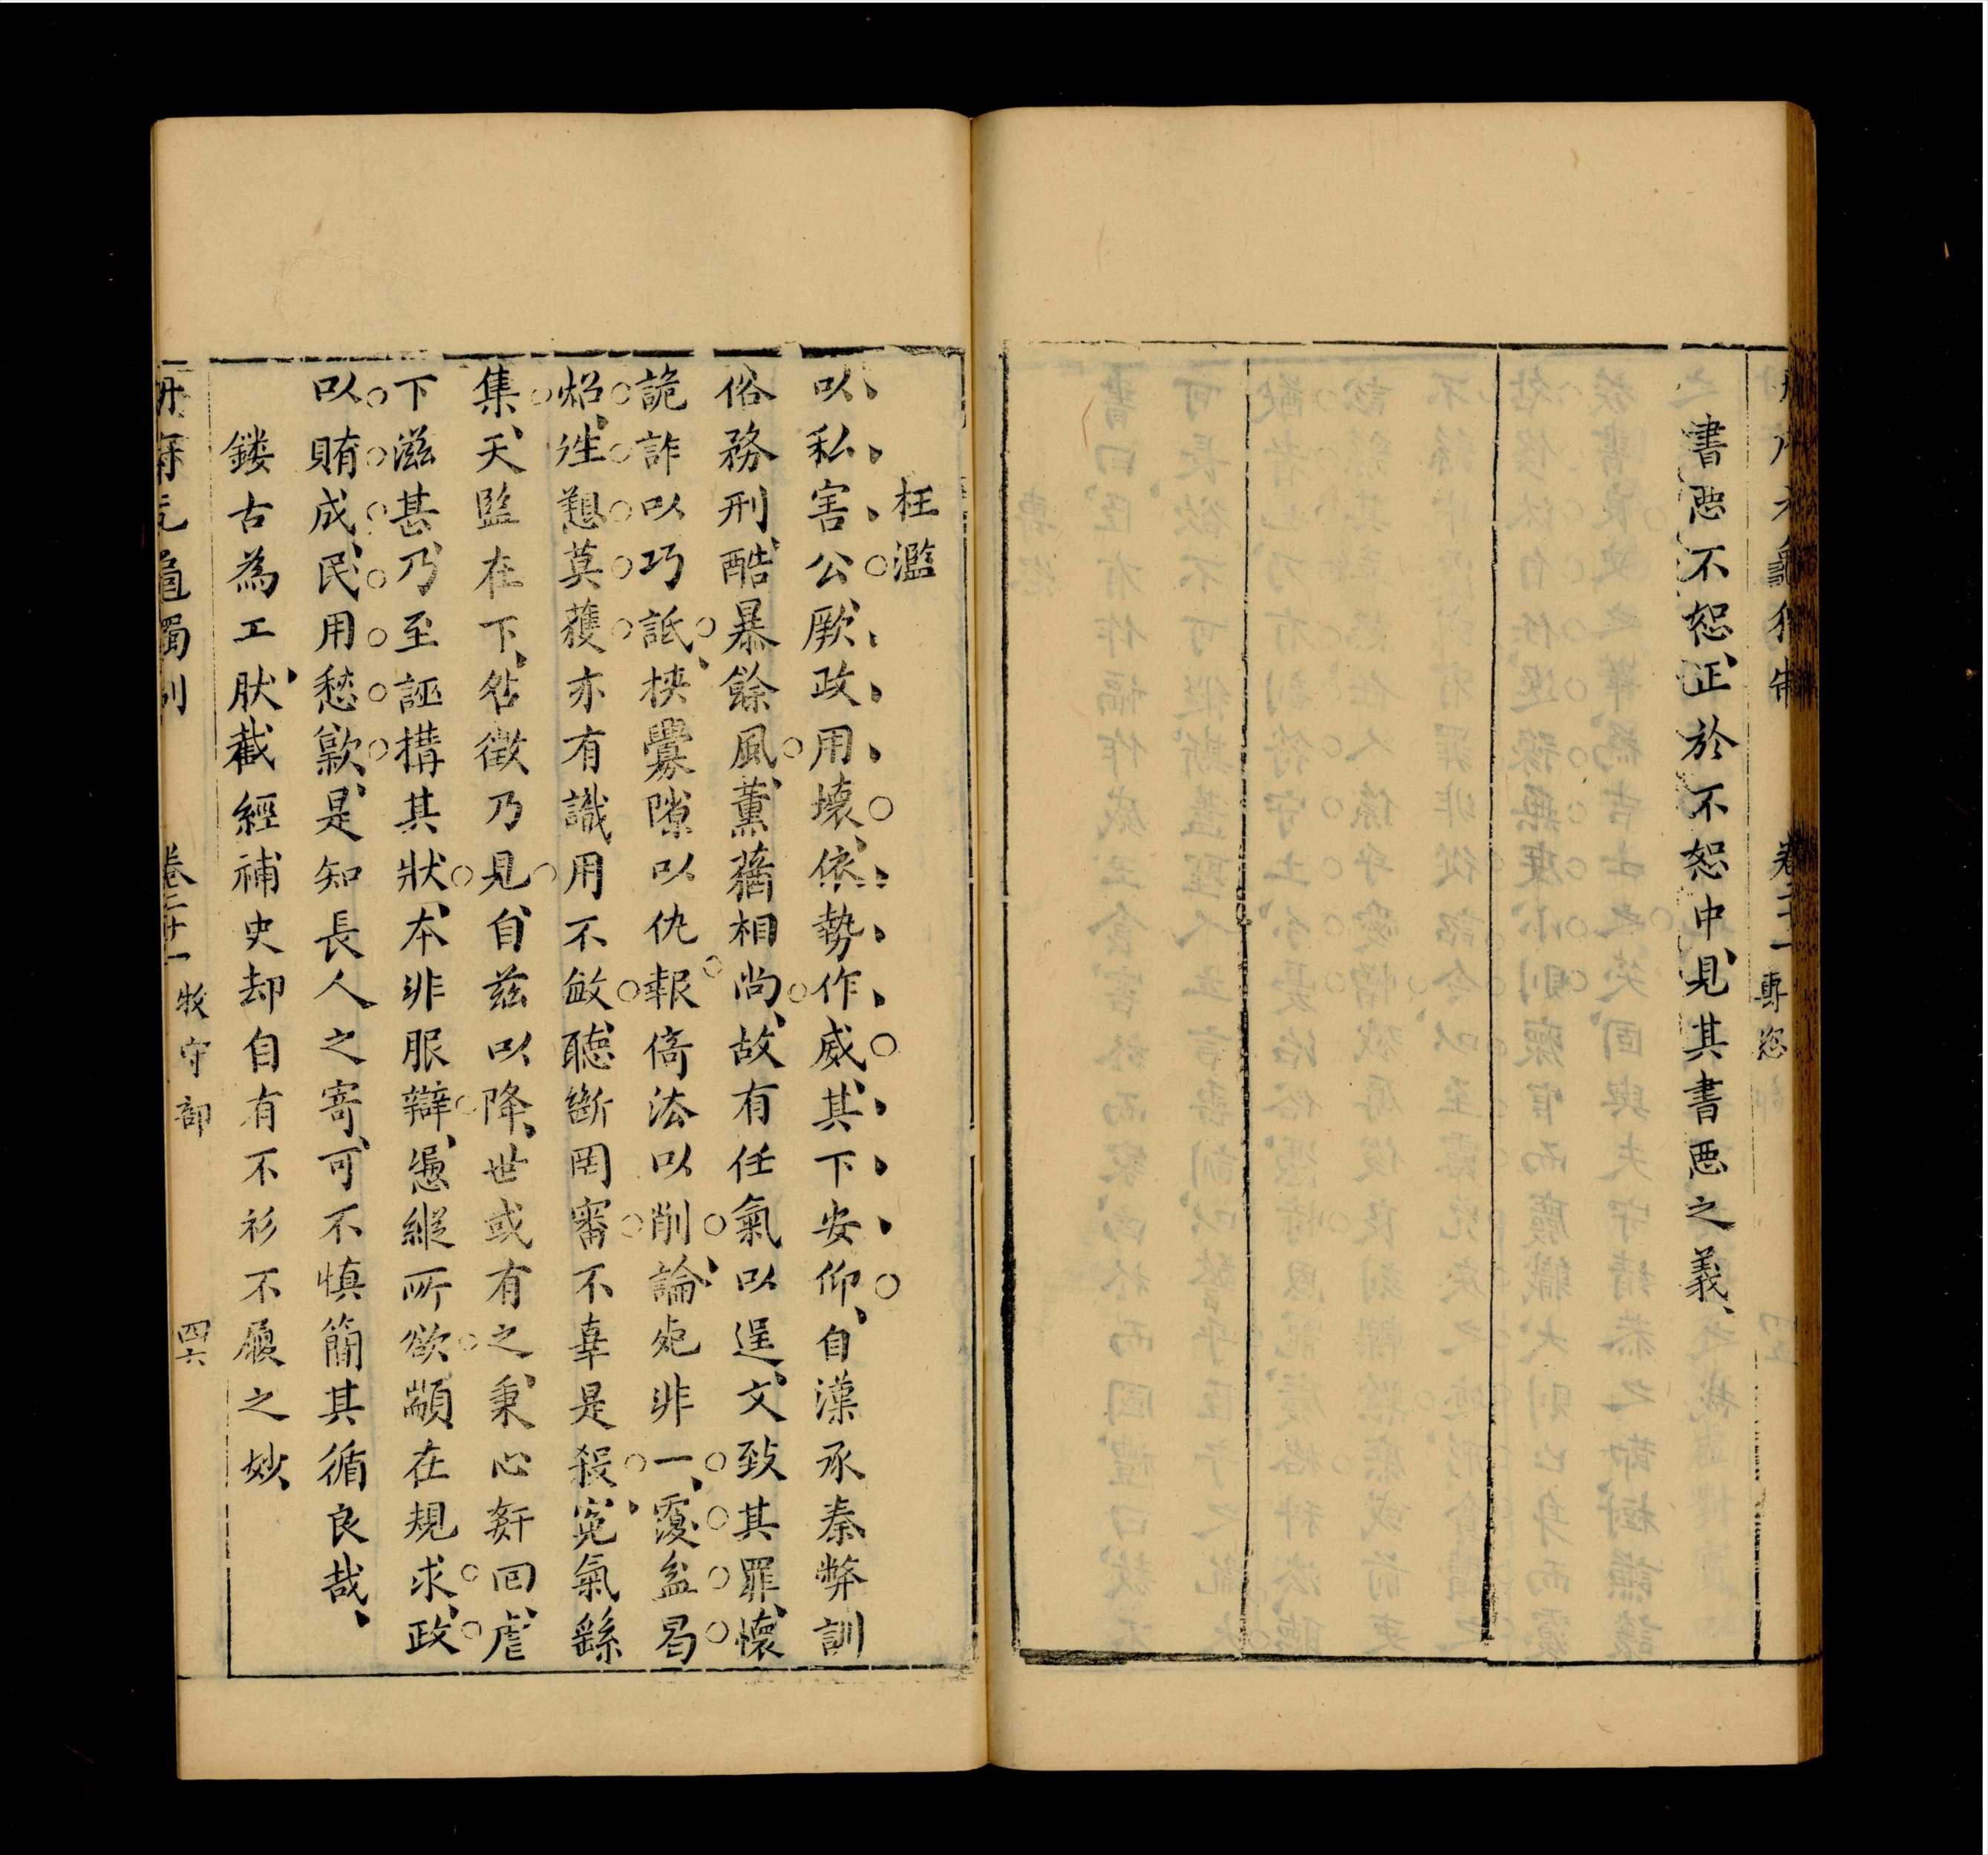 卷二十一 專恣
書惡不恕正於不恕中見其書惡之義
枉濫
以私害公厥政用壞依勢作威其下安仰自漢承秦弊訓
俗務刑酷暴餘風薰蕕相尚故有任氣以逞文致其罪懷
詭詐以巧詆挾釁隙以仇報倚法以削論處非一覆盆曷
炤徃愬莫獲亦有識用不敏聽斷罔審不辜是殺寃氣繇
集天監在下咎徵乃見自茲以降世或有之秉心姧回虐
下滋甚乃至誣搆其狀本非服辯慿縱所欲顓在規求政
以賄成民用愁歎是知長人之寄可不慎簡其循良哉
鏤古為工肰截經補史却自有不衫不履之妙
冊府元龜獨制 卷二十一 牧守部 四六